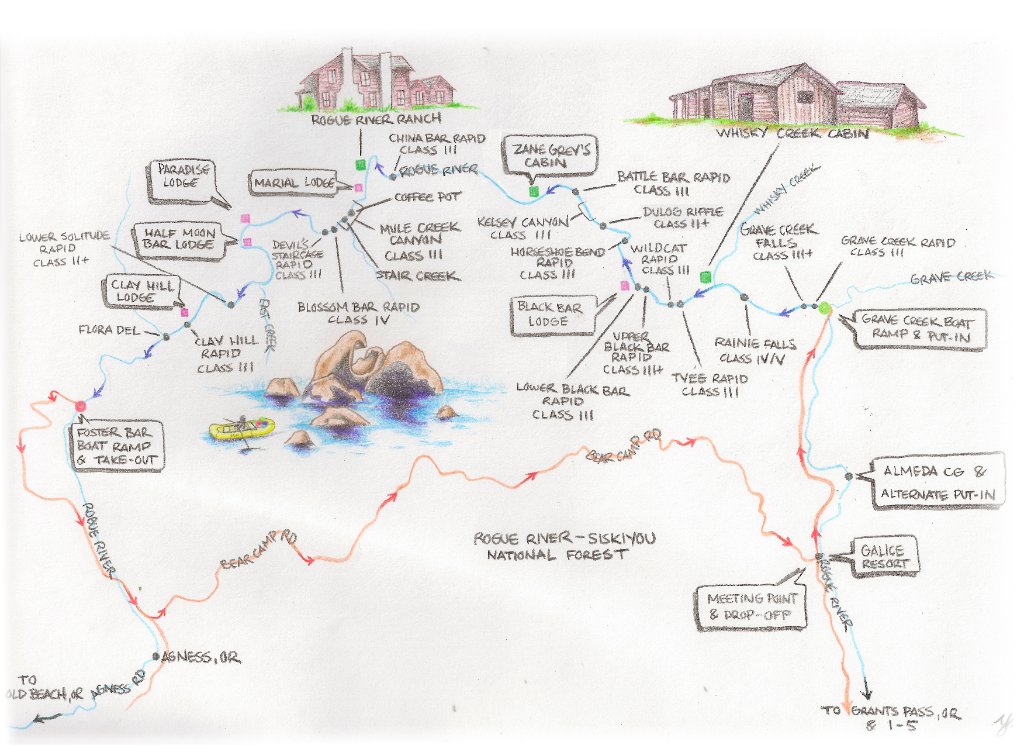 ROGUE RIVER RANCH
CHINA BAR RAPID
CLASS III
ROGUE RIVER
WHISKY CREEK CABIN
ZANE GREY'S
CABIN
PARADISE
LODGE
MARIAL LODGE
COFFEE POT
BATTLE BAR RAPID
CLASS III
WHISKY CREEK
HALF MOON
BAR LODGE
MULE CREEK
CANYON
CLASS III
KELSEY CANYON
CLASS III
DULOG RIFFLE
CLASS II+
GRAVE CREEK
FALLS
CLASS III+
GRAVE CREEK RAPID
CLASS III
LOWER SOLITUDE
RAPID
CLASS II+
DEVIL'S
STAIRCASE
RAPID
CLASS III
STAIR CREEK
HORSESHOE BEND
RAPID
CLASS III
WILDCAT
RAPID
CLASS III
GRAVE CREEK
CLAY HILL
LODGE
EAST CREEK
BLOSSOM BAR RAPID
CLASS IV
BLACK BAR
LODGE
GRAVE CREEK BOAT
RAMP & PUT-IN
FLORA DEL
CLAY HILL
RAPID
CLASS III
UPPER
BLACK BAR
RAPID
CLASS III+
RAINIE FALLS
CLASS IV/V
LOWER BLACK BAR
RAPID
CLASS III
TYEE RAPID
CLASS III
FOSTER BAR
BOAT RAMP
& TAKE-OUT
BEAR CAMP RD
ALMEDA CG &
ALTERNATE PUT-IN
ROGUE RIVER
BEAR CAMP RD
ROGUE RIVER-SISKIYOU
NATIONAL FOREST
GALICE
RESORT
MEETING POINT
& DROP-OFF
ROGUE RIVER
AGNESS, OR
TO
OLD BEACH, OR
AGNESS RD
TO GRANTS PASS, OR
& I-5